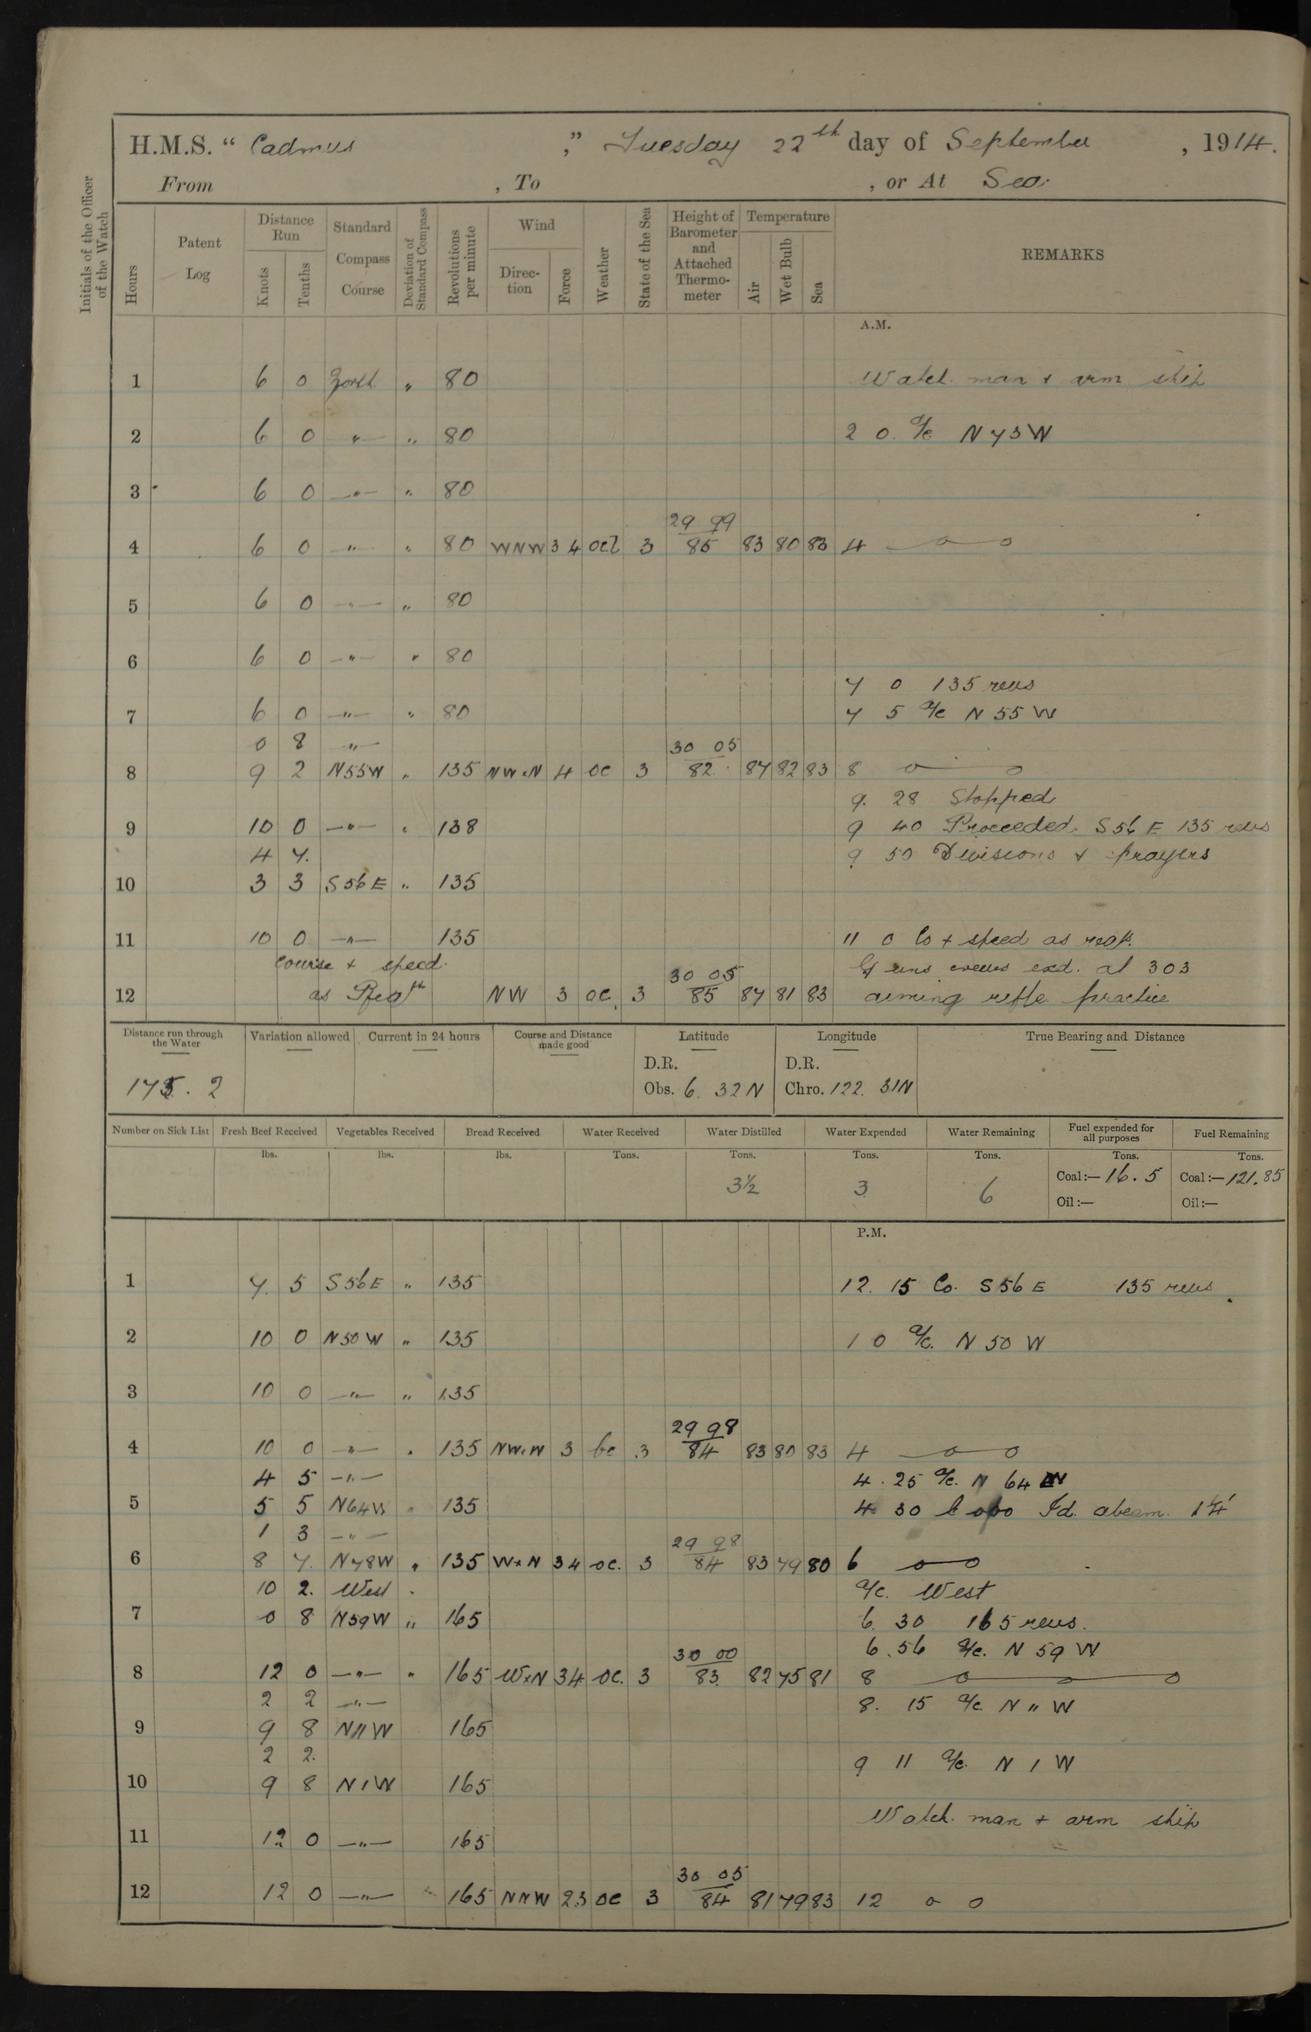 H.M.S. " Cadmus ," Tuesday 22th day of September , 1914.
From , To , or At Sea
Initials of the Officer of the Watch
Hours Patent Log Distance Run Knots Tenths Standard Compass Course Deviation of Standard Compass Revolutions per minute Wind Direction Force Weather State of the Sea Height of Barometer and Attached Thermometer Temperature Air Wet Bulb Sea REMARKS
A.M.
1 6 0 " 80 Watch man + arm ship
2 6 0 —"— " 80 2 0 a/c N 73 W
3 6 0 —"— " 80
29 99
4 6 0 —"— " 80 WNW 3 4 3 85 83 80 83 4
5 6 0 —"— " 80
6 6 0 —"— " 80
7 0 135 revs
7 6 0 —"— " 80 7 5 a/c N 55 W
0 8 —"— 30 05
8 9 2 N55W " 135 NWxN 4 oc 3 82 84 82 83 8
9. 28 Stopped
9 10 0 —"— " 138 9 40 Proceeded S 56 E 135 revs
4 7. 9 50 Divisions + prayers
10 3 3 S56E " 135
11 10 0 —"— 135 11 0 Co + speed as reqd.
Course + speed 30 05 Guns crews exd. at 303
12 as Reqd NW 3 oc 3 85 84 81 83 aiming rifle practice
Distance run through the Water Variation allowed Current in 24 hours Course and Distance made good Latitude Longitude True Bearing and Distance
D.R. D.R.
175. 2 Obs. 6. 32 N Chro. 122. 31 N
Number on Sick List Fresh Beef Received Vegetables Received Bread Received Water Received Water Distilled Water Expended Water Remaining Fuel expended for all purposes Fuel Remaining
lbs. lbs. lbs. Tons. Tons. Tons. Tons. Tons. Tons.
3½ 3 6 Coal:— 16.5 Coal:— 121.85
Oil:— Oil:—
P.M.
1 7. 5 S56E " 135 12. 15 Co. S 56 E 135 revs.
2 10 0 N50W " 135 1 0 a/c. N 50 W
3 10 0 —"— " 135
29 98
4 10 0 —"— " 135 NWxW 3 bc 3 84 83 80 83 4
4 5 —"— 4. 25 a/c. N 64 W
5 5 5 N64W " 135 4 30 Id. abeam 1¼'
1 3 —"— 29 98
6 8 7. N78W " 135 WxN 3 4 oc. 3 84 83 79 80 6
10 2. West a/c. West
7 0 8 N59W " 165 6. 30 165 revs.
30 00 6. 56 a/c. N 59 W
8 12 0 —"— " 165 WxN 3 4 oc. 3 83 82 75 81 8
2 2 —"— 8. 15 a/c N 11 W
9 9 8 N11W 165
2 2. 9 11 a/c. N 1 W
10 9 8 N1W 165
Watch man + arm ship
11 12 0 —"— 165
30 05
12 12 0 —"— " 165 NNW 2 3 oc 3 84 81 79 83 12